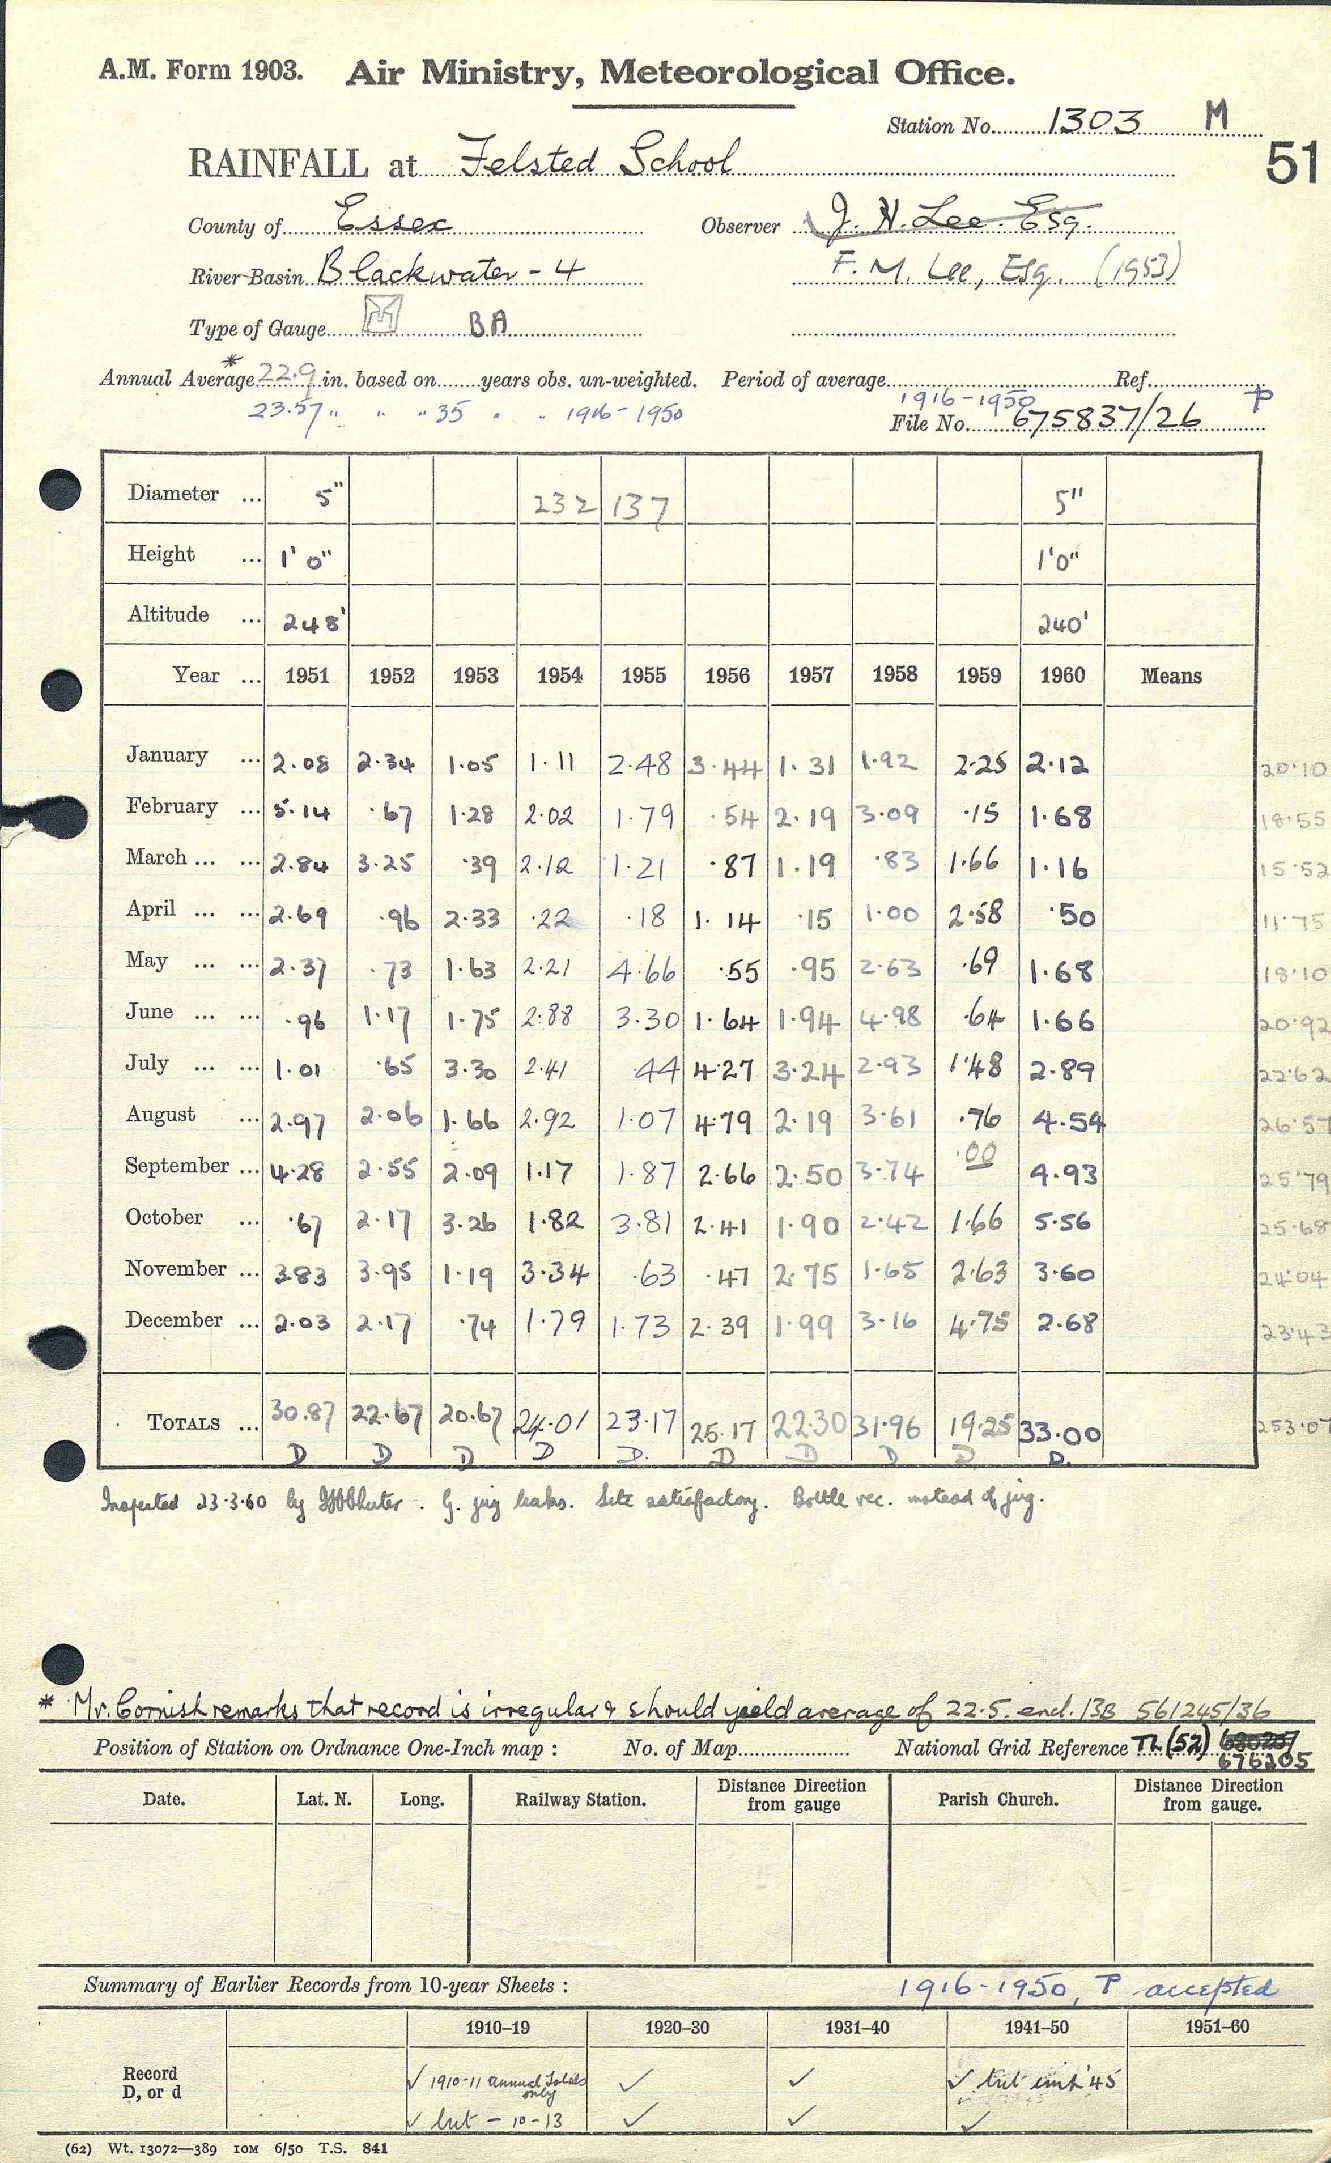 A.M. Form 1903. Air Ministry, Meteorological Office.
Station No. 1303 M
51
RAINFALL at Felsted School
County of Essex Observer J. N. Lee. Esq.
River Basin Blackwater - 4 F. M. Lee, Esq. (1953)
Type of Gauge M BA
Annual Average * 22.9 in. based on years obs. un-weighted. Period of average 1916-1950 Ref.
23.57 " " " 35 " " 1916-1950 File No. 675837/26 P
Diameter ... 5" 232 137 5"
Height ... 1' 0" 1'0"
Altitude ... 248' 240'
Year ... 1951 1952 1953 1954 1955 1956 1957 1958 1959 1960 Means
January ... 2.08 2.34 1.05 1.11 2.48 3.44 1.31 1.92 2.25 2.12 20.10
February ... 5.14 .67 1.28 2.02 1.79 .54 2.19 3.09 .15 1.68 18.55
March ... ... 2.84 3.25 .39 2.12 1.21 .87 1.19 .83 1.66 1.16 15.52
April ... ... 2.69 .96 2.33 .22 .18 1.14 .15 1.00 2.58 .50 11.75
May ... ... 2.37 .73 1.63 2.21 4.66 .55 .95 2.63 .69 1.68 18.10
June ... ... .96 1.17 1.75 2.88 3.30 1.64 1.94 4.98 .64 1.66 20.92
July ... ... 1.01 .65 3.30 2.41 44 4.27 3.24 2.93 1.48 2.89 22.62
August ... 2.97 2.06 1.66 2.92 1.07 4.79 2.19 3.61 .76 4.54 26.57
September ... 4.28 2.55 2.09 1.17 1.87 2.66 2.50 3.74 .00 4.93 25.79
October ... .67 2.17 3.26 1.82 3.81 2.41 1.90 2.42 1.66 5.56 25.68
November ... 3.83 3.95 1.19 3.34 .63 .47 2.75 1.65 2.63 3.60 24.04
December ... 2.03 2.17 .74 1.79 1.73 2.39 1.99 3.16 4.75 2.68 23.43
TOTALS ... 30.87 22.67 20.67 24.01 23.17 25.17 22.30 31.96 19.25 33.00 253.07
D D D D D. D D D D D.
Inspected 23.3.60 by . G. jug leaks. Site satisfactory. Bottle rec. instead of jug.
* Mr. Cornish remarks that record is irregular & should yield average of 22.5. encl. 13B 561245/36
Position of Station on Ordnance One-Inch map : No. of Map National Grid Reference TL (52)
676205
Date. Lat. N. Long. Railway Station. Distance from gauge Direction Parish Church. Distance from gauge. Direction
Summary of Earlier Records from 10-year Sheets : 1916-1950, P accepted
1910-19 1920-30 1931-40 1941-50 1951-60
Record D, or d ✓ 1910-11 annual totals only ✓ ✓ ✓ but '45
✓ but - 10-13 ✓ ✓ ✓
(62) Wt. 13072—389 10M 6/50 T.S. 841